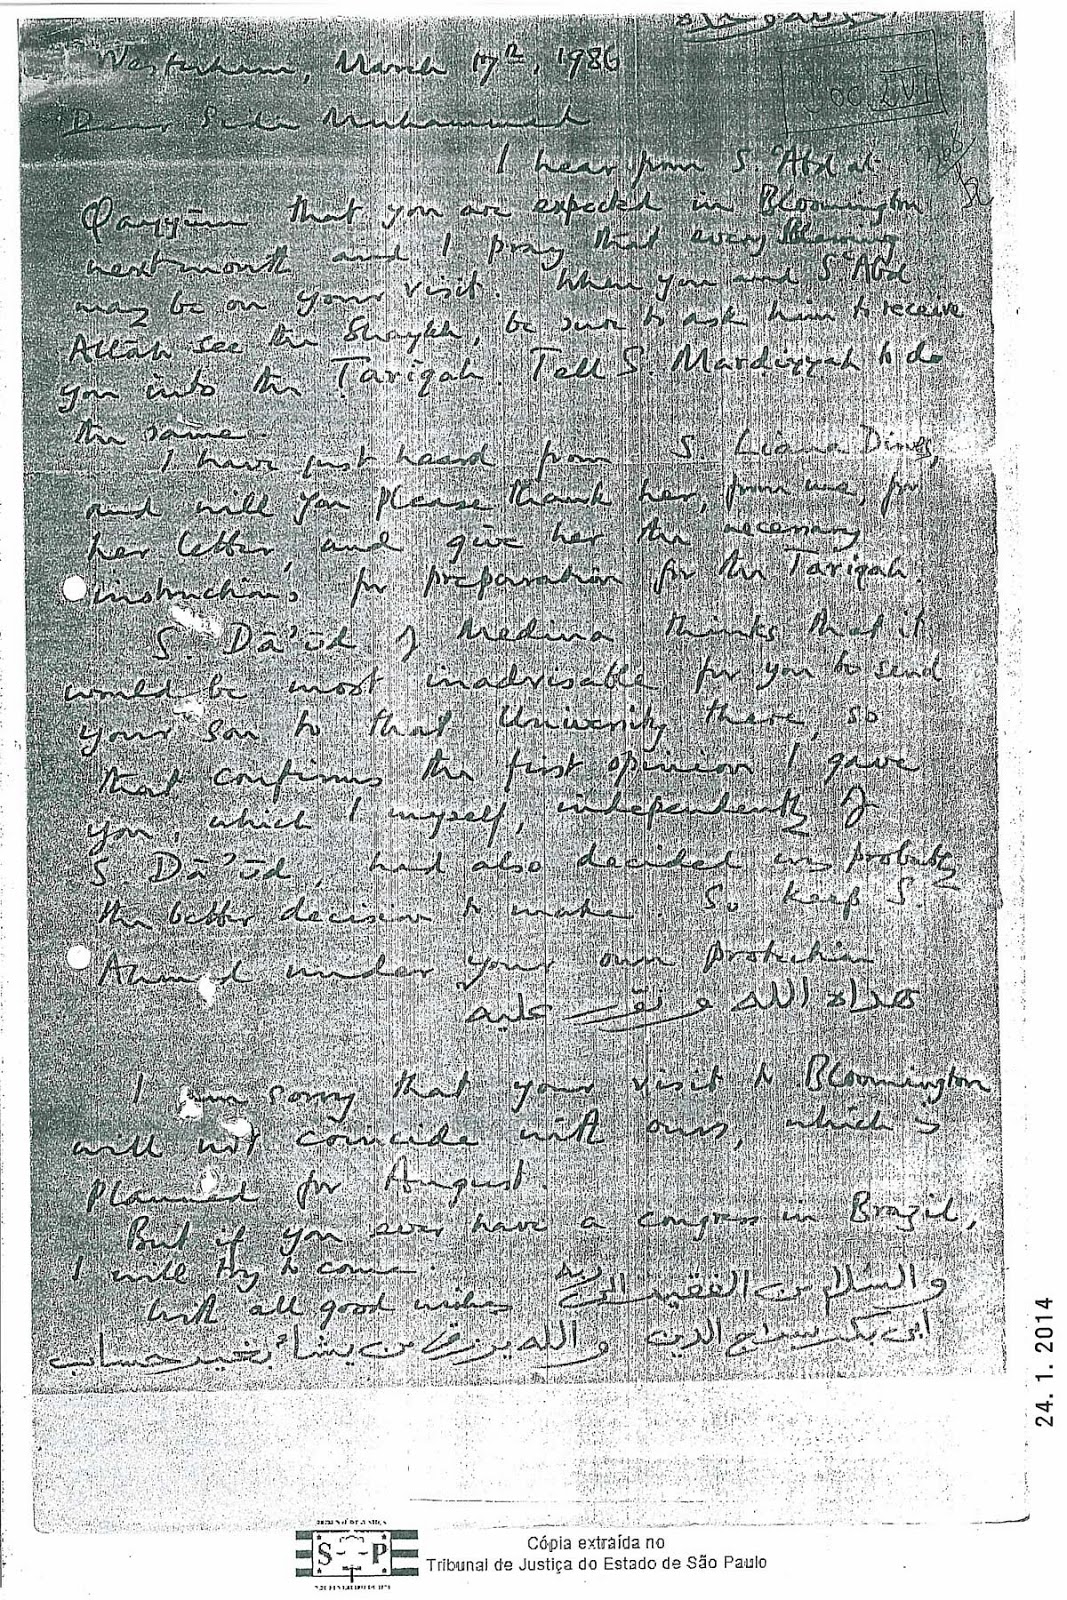 الحمد لله وحده
Westerham, March 17th, 1986
Doc. LVI
Dear Sidi Muhammad
I hear from S. ʿAbd al-
Qayyūm that you are expected in Bloomington
next month and I pray that every Blessing
may be on your visit. When you and S. ʿAbd
Allāh see the Shaykh, be sure to ask him to receive
you into the Tarīqah. Tell S. Mardiyyah to do
the same.
I have just heard from S. Liana Dines,
and will you please thank her, from me, for
her letter, and give her the necessary
instructions for preparation for the Tarīqah.
S. Dā'ūd of Medina thinks that it
would be most inadvisable for you to send
your son to that University there, so
that confirms the first opinion I gave
you, which I myself, independently of
S. Dā'ūd, had also decided was probably
the better decision to make. So keep S.
Ahmad under your own protection
هداه الله و نور عليه
I am sorry that your visit to Bloomington
will not coincide with ours, which is
planned for August.
But if you ever have a congress in Brazil,
I will try to come.
With all good wishes والسلام من الفقير الى ربه
ابى بكر سراج الدين والله يرزق من يشاء بغير حساب
24. 1. 2014
TRIBUNAL DE JUSTIÇA
S P
3 DE FEVEREIRO DE 1874
Cópia extraída no
Tribunal de Justiça do Estado de São Paulo